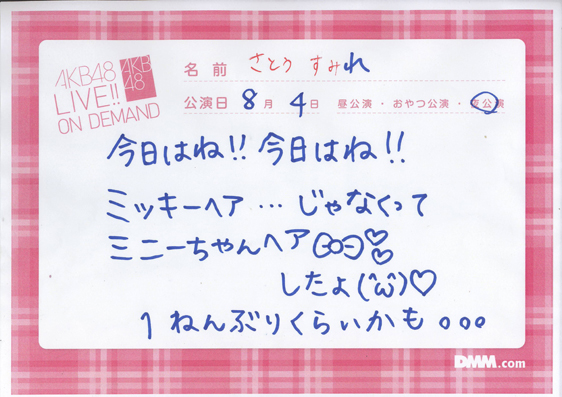 AKB48
LIVE!!
ON DEMAND
AKB
48
名前 さとう すみれ
公演日 8月 4日 昼公演・おやつ公演・夜公演
今日はね!! 今日はね!!
ミッキーヘア…じゃなくって
ミニーちゃんヘア♡♡
したよ(^ω^)♡
1ねんぶりくらいかも。。。
DMM.com